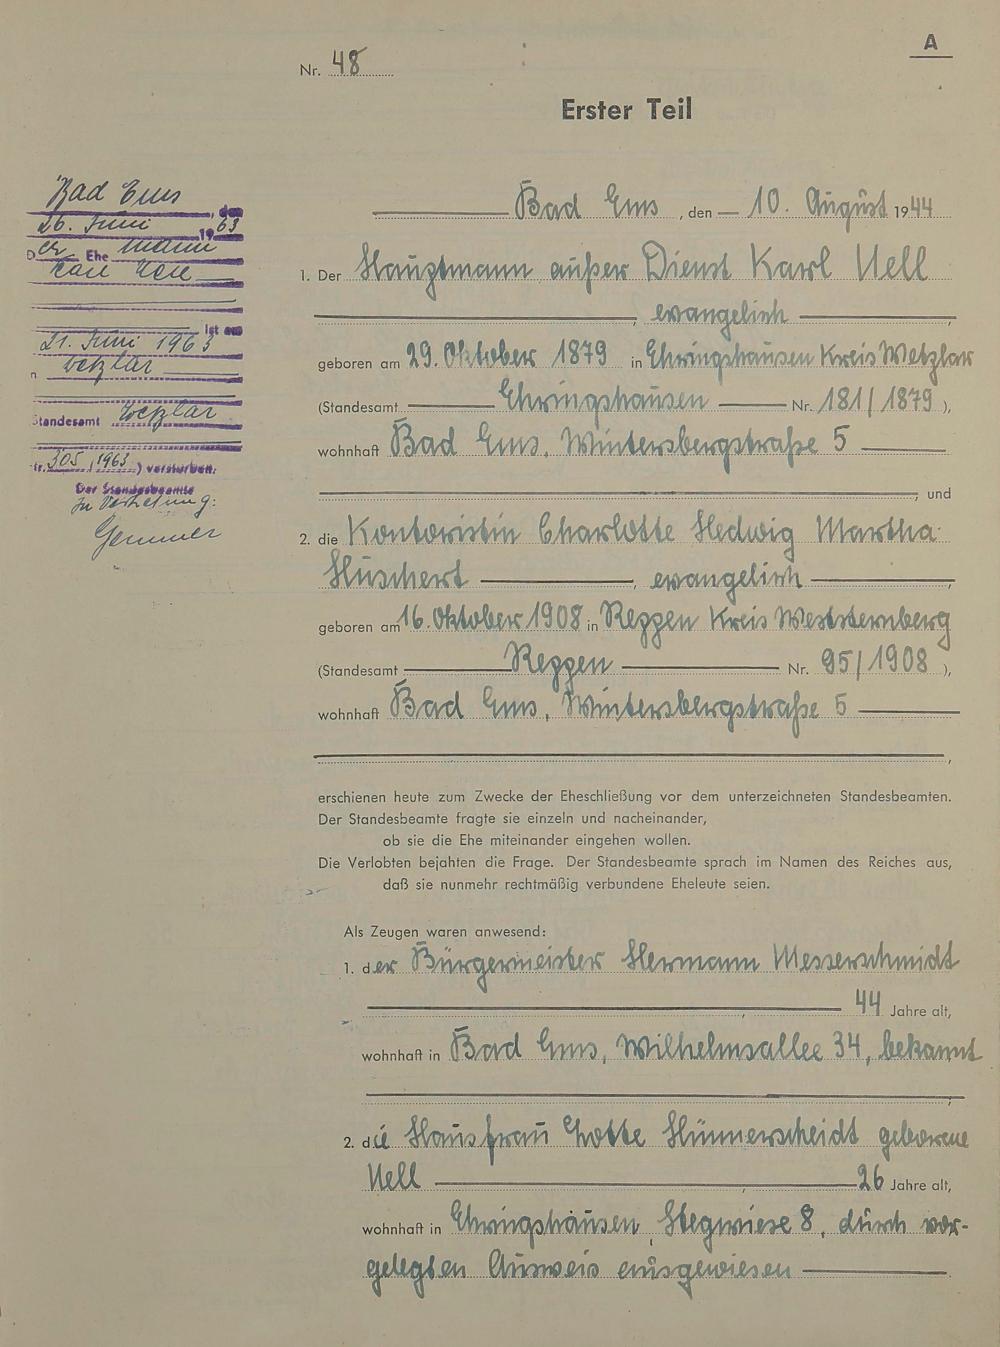 A
Nr. 48
Erster Teil
Bad Ems, den 10. August 1944
1. Der Hauptmann außer Dienst Karl Uell
, evangelisch ,
geboren am 29. Oktober 1879 in Ehringshausen Kreis Wetzlar
(Standesamt Ehringshausen Nr. 181/1879 ),
wohnhaft Bad Ems, Wintersbergstraße 5
, und
2. die Kontoristin Charlotte Hedwig Martha
Huschert , evangelisch ,
geboren am 16. Oktober 1908 in Reppen Kreis Weststernberg
(Standesamt Reppen Nr. 95/1908 ),
wohnhaft Bad Ems, Wintersbergstraße 5
,
erschienen heute zum Zwecke der Eheschließung vor dem unterzeichneten Standesbeamten.
Der Standesbeamte fragte sie einzeln und nacheinander,
ob sie die Ehe miteinander eingehen wollen.
Die Verlobten bejahten die Frage. Der Standesbeamte sprach im Namen des Reiches aus,
daß sie nunmehr rechtmäßig verbundene Eheleute seien.
Als Zeugen waren anwesend:
1. der Bürgermeister Hermann Messerschmidt
, 44 Jahre alt,
wohnhaft in Bad Ems, Wilhelmsallee 34, bekannt
,
2. die Hausfrau Lotte Hünnerscheidt geborene
Uell , 26 Jahre alt,
wohnhaft in Ehringshausen, Stegwiese 8, durch vor-
gelegten Ausweis ausgewiesen
Bad Ems, den
26. Juni 1963
Der Ehemann
Karl Uell
ist am
21. Juni 1963
in Wetzlar
Standesamt Wetzlar
Nr. 305/1963) verstorben.
Der Standesbeamte
In Vertretung: